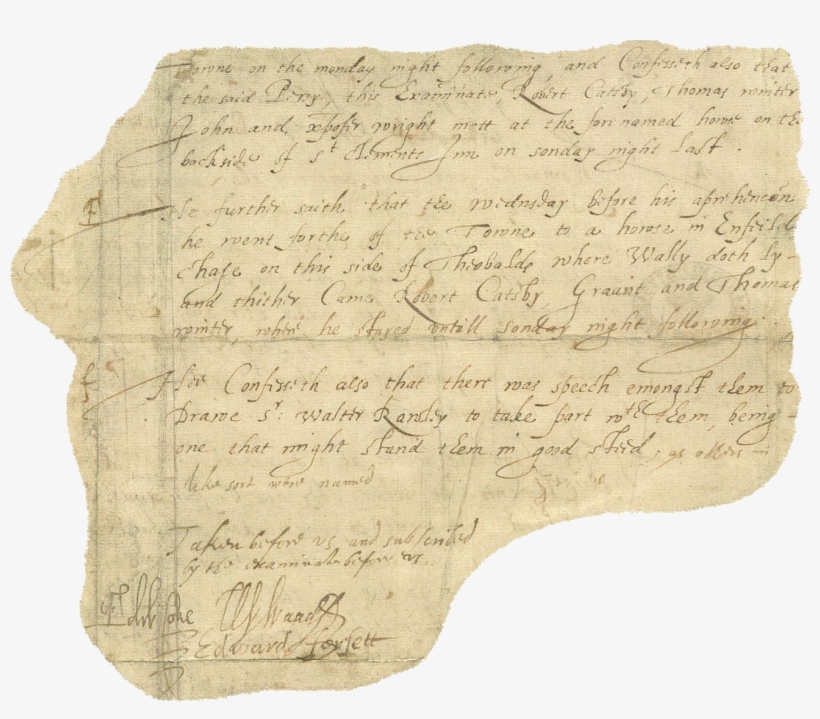 Towne on the monday night following, and Confesseth also that
the said Percy, this Examinate, Robert Catsby, Thomas winter
John and xpofer wright mett at the forenamed howse on the
backside of St Clements Inn on sonday night last.
F
He further saith that the wednsday before his aprehencon
he went forthe of the Towne to a howse in Enfeild
Chase on this side of Theobalds where Wally doth ly -
and thither Came Robert Catsby, Graunt and Thomas
winter, where he stayed untill sonday night following.
Hee Confesseth also that there was speech emongst them to
Drawe Sr: Walter Rawley to take part wth them, being -
one that might stand them in good steed, as others in
like sort were named
Taken before us and subscribed
by the examinate before us
Edw Coke W Waad
Edward forsett